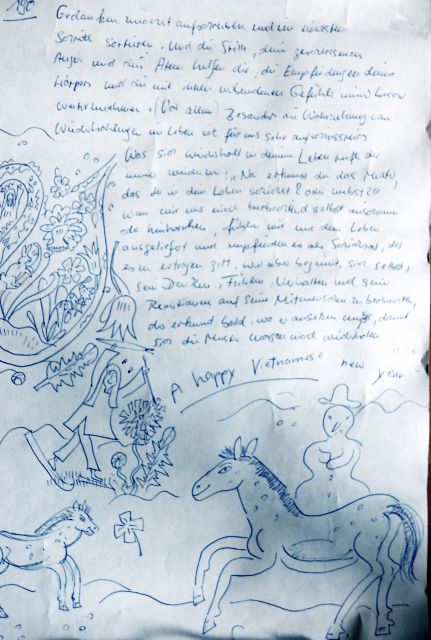 190
Gedanken zuerst aufschreiben und im nächsten
Schritt sortieren. Und die Stille, deine geschlossenen
Augen und dein Atem helfen dir, die Empfindungen deines
Körpers und die mit ihnen verbundenen Gefühle immer besser
wahrzunehmen. (Vor allem) Besonders die Wahrnehmung von
Wiederholungen im Leben ist für uns sehr aufschlussreich
Was sich wiederholt in deinem Leben ruft dir
immer wieder zu: „Na erkennst du das Muster,
das du in dein Leben
wenn wir uns nicht beobachtend selbst
oder hinhorchen, fühlen wir uns dem Leben
ausgeliefert und empfinden es als Schicksal, das
es zu ertragen gilt, wer aber beginnt, sich selbst,
sein Denken, Fühlen, Verhalten und seine
Reaktionen auf seine Mitmenschen zu beobachten,
der erkennt bald, wo er ansetzen muß, damit
sich die Muster nicht wiederholen
A happy Vietnamese new year